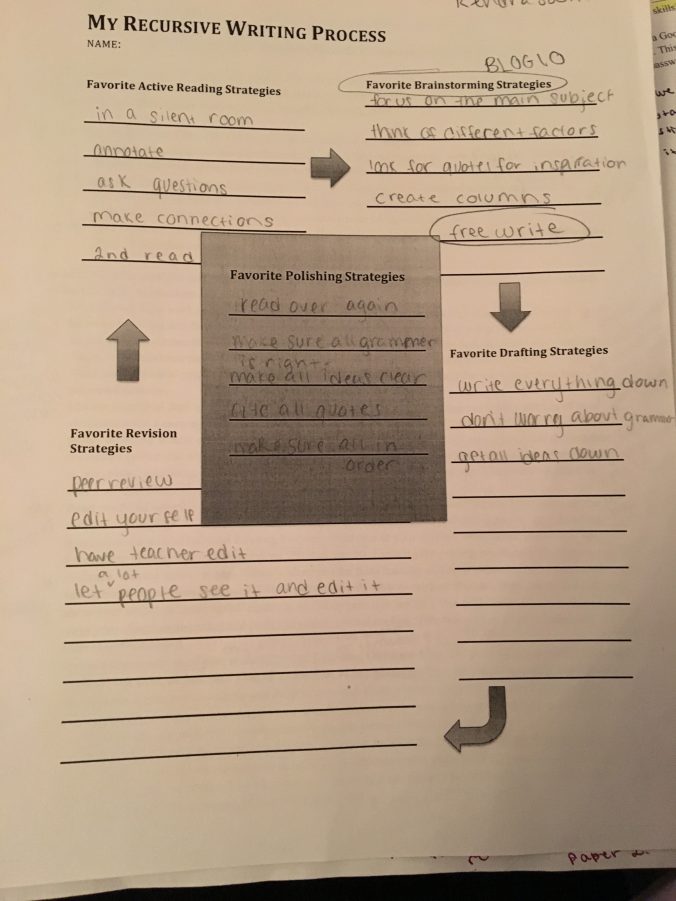 MY RECURSIVE WRITING PROCESS
NAME:
BLOG 10
Favorite Active Reading Strategies
in a silent room
annotate
ask questions
make connections
2nd read
Favorite Brainstorming Strategies
focus on the main subject
think of different factors
look for quotes for inspiration
create columns
free write
Favorite Polishing Strategies
read over again
make sure all grammer
is right
make all ideas clear
cite all quotes
make sure all in
order
Favorite Drafting Strategies
write everything down
don't worry about grammer
get all ideas down
Favorite Revision
Strategies
peer review
edit yourself
have teacher edit
let a lot people see it and edit it
skills
paper